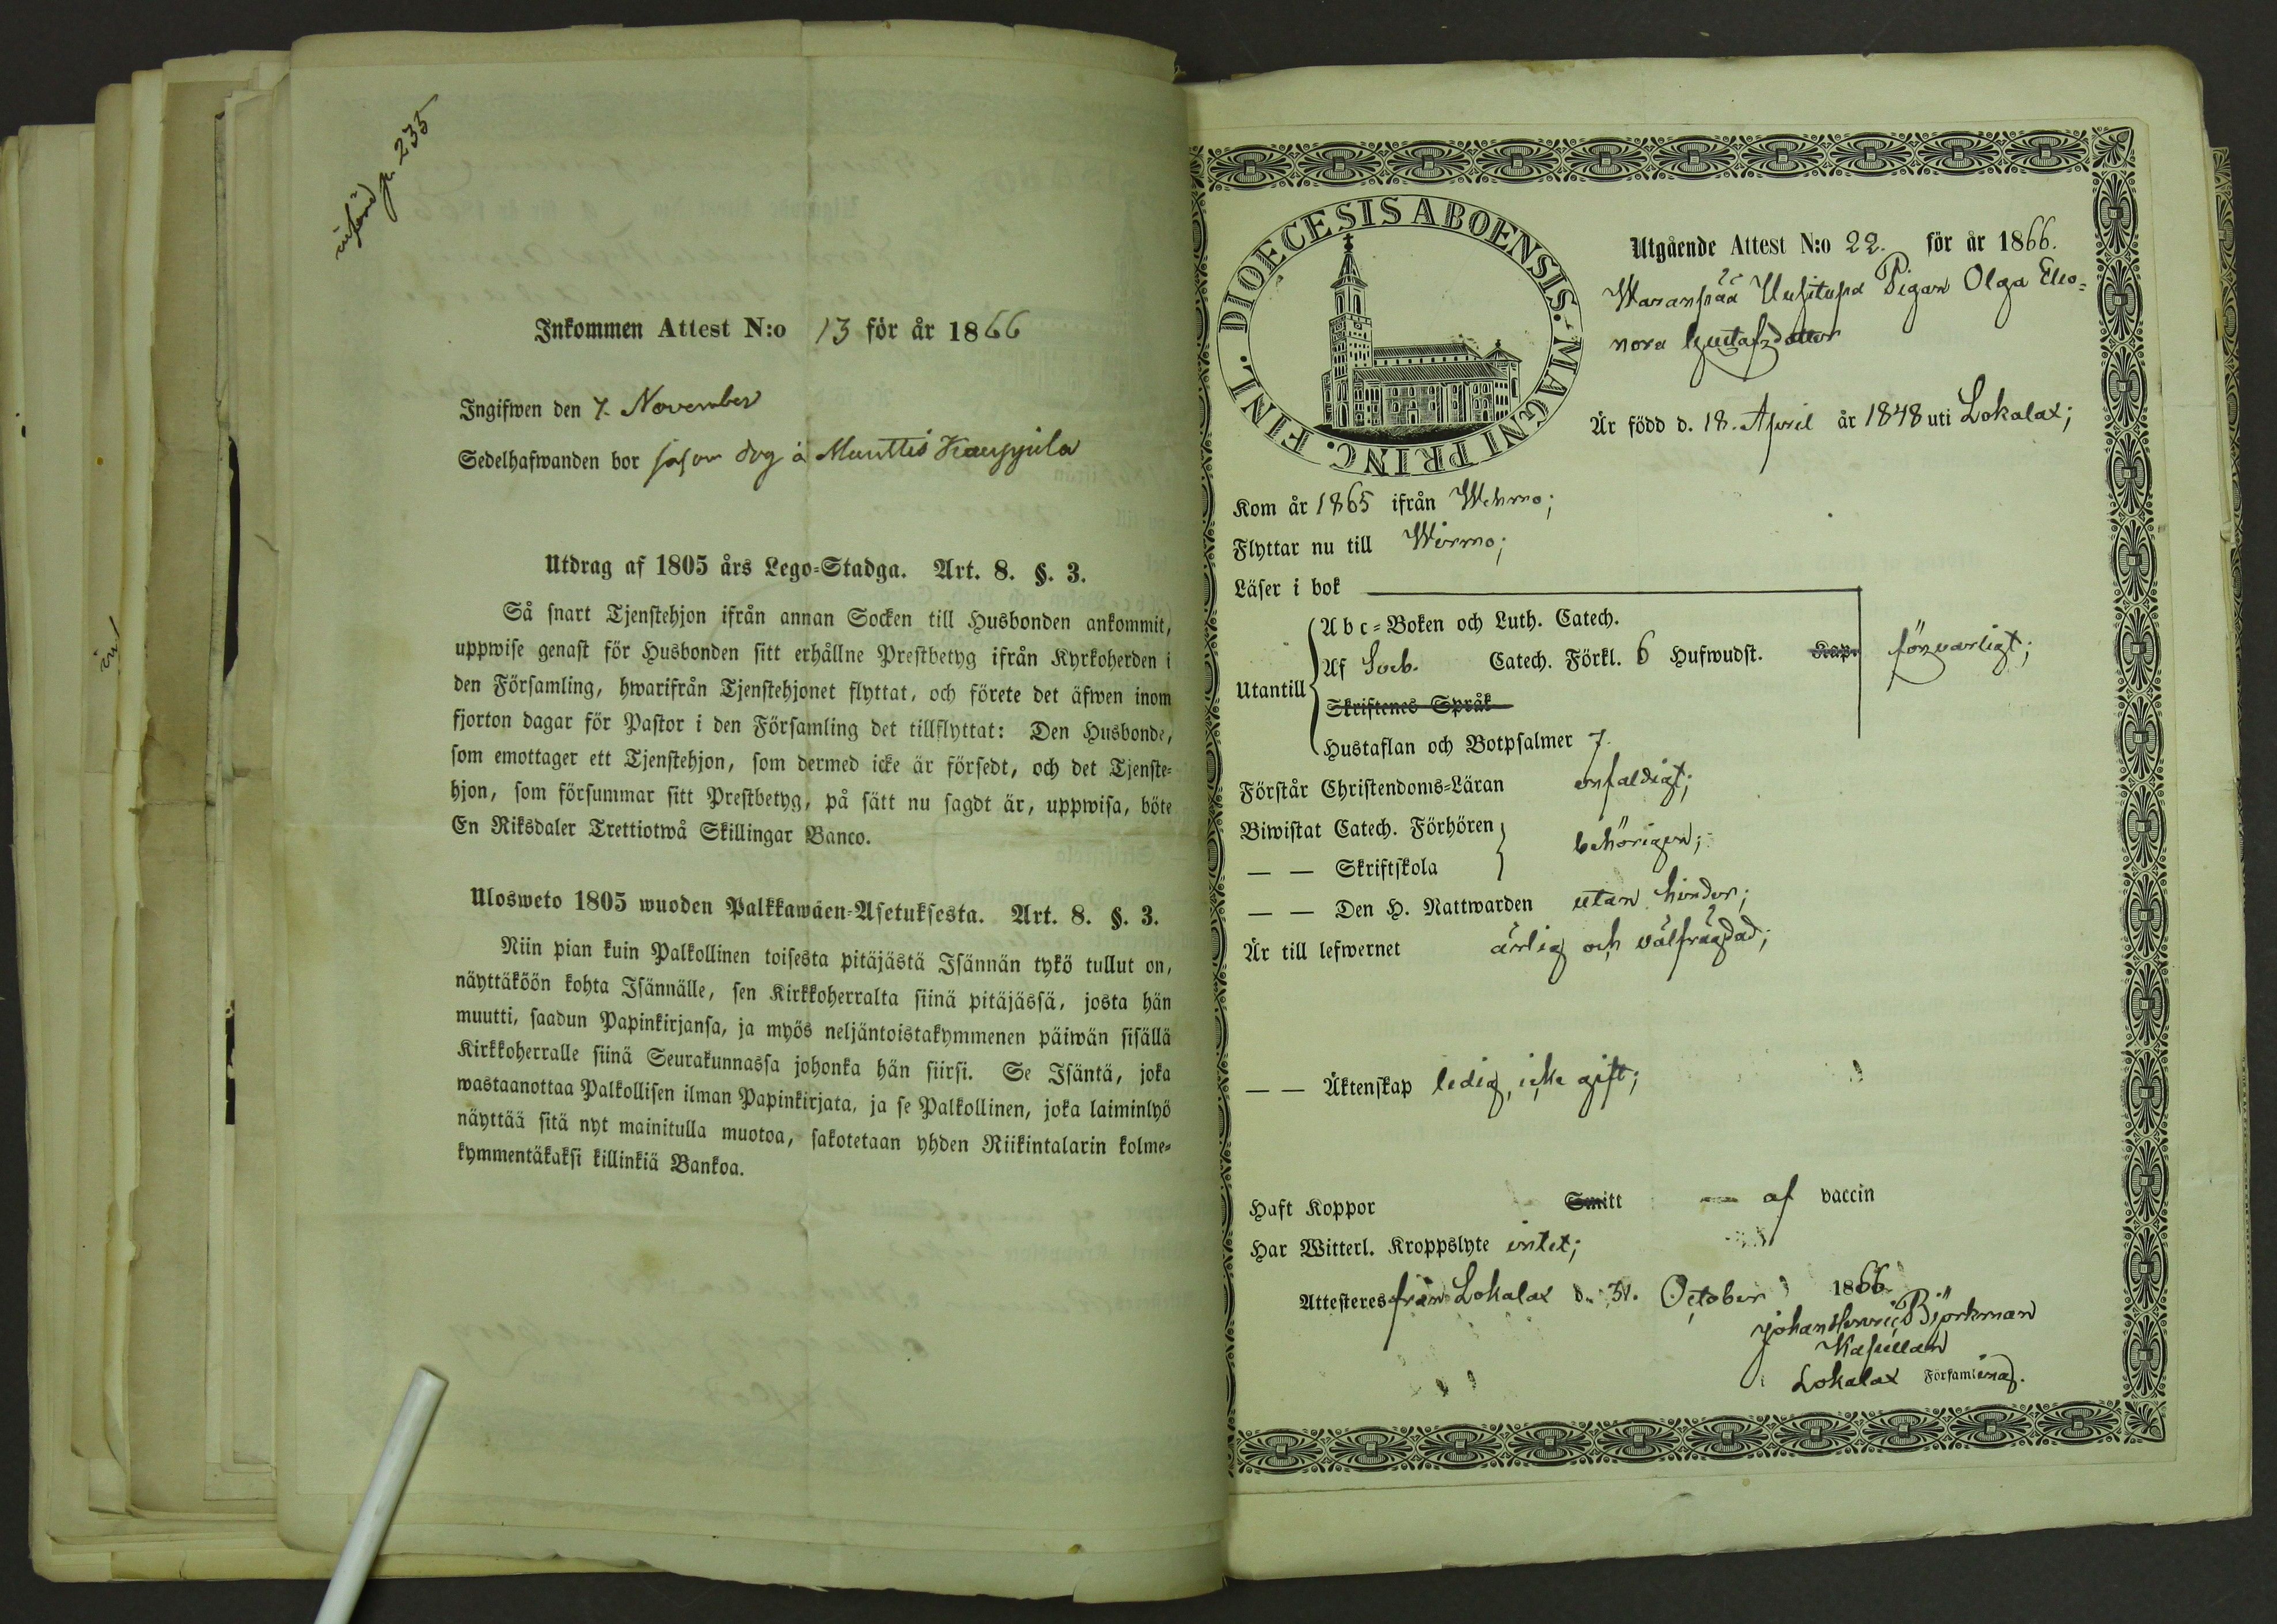 införd p. 235
Inkommen Attest N:o 13 för år 1866
Ingifwen den 7. November
Sedelhafwanden bor såsom dog å Munttis
Utdrag af 1805 års Lego-Stadga. Art. 8. §. 3.
Så snart Tjenstehjon ifrån annan Socken till Husbonden ankommit,
uppwise genast för Husbonden sitt erhållne Prestbetyg ifrån Kyrkoherden i
den Församling, hwarifrån Tjenstehjonet flyttat, och förete det äfwen inom
fjorton dagar för Pastor i den Församling det tillflyttat: Den Husbonde,
som emottager ett Tjenstehjon, som dermed icke är försedt, och det Tjenste-
hjon, som försummar sitt Prestbetyg, på sätt nu sagdt är, uppwisa, böte
En Riksdaler Trettiotwå Skillingar Banco.
Ulosweto 1805 wuoden Palkkawäen-Asetuksesta. Art. 8. §. 3.
Niin pian kuin Palkollinen toisesta pitäjästä Isännän tykö tullut on,
näyttäköön kohta Isännälle, sen Kirkkoherralta siinä pitäjässä, josta hän
muutti, saadun Papinkirjansa, ja myös neljäntoistakymmenen päiwän sisällä
Kirkkoherralle siinä Seurakunnassa johonka hän siirsi. Se Isäntä, joka
wastaanottaa Palkollisen ilman Papinkirjata, ja se Palkollinen, joka laiminlyö
näyttää sitä nyt mainitulla muotoa, sakotetaan yhden Riikintalarin kolme-
kymmentäkaksi killinkiä Bankoa.
FINL. DIOECESIS ABOENSIS. MAGNI PRINC.
Utgående Attest N:o 22. för år 1866.
Waranpää Uusitupa Pigan Olga Eleo-
nora Gustafsdotter
Är född d. 18. April år 1848 uti Lokalax;
Kom år 1865 ifrån Wehmo;
Flyttar nu till Wirmo;
Läser i bok
Abc-Boken och Luth. Catech.
Utantill Af Sveb. Catech. Förkl. 6 Hufwudst. Kap. försvarligt;
Skriftenes Språk
Hustaflan och Botpsalmer 7.
Förstår Christendoms-Läran enfaldigt;
Biwistat Catech. Förhören behörigen;
— — Skriftskola
— — Den H. Nattwarden utan hinder;
Är till lefwernet ärlig och välfrägdad;
— — Äktenskap ledig, icke gift;
Haft Koppor Smitt af vaccin
Har Witterl. Kroppslyte intet;
Attesteres från Lokalax d. 31. October 1866.
Johan Henric Björkman
Kapellan
Lokalax Församling.